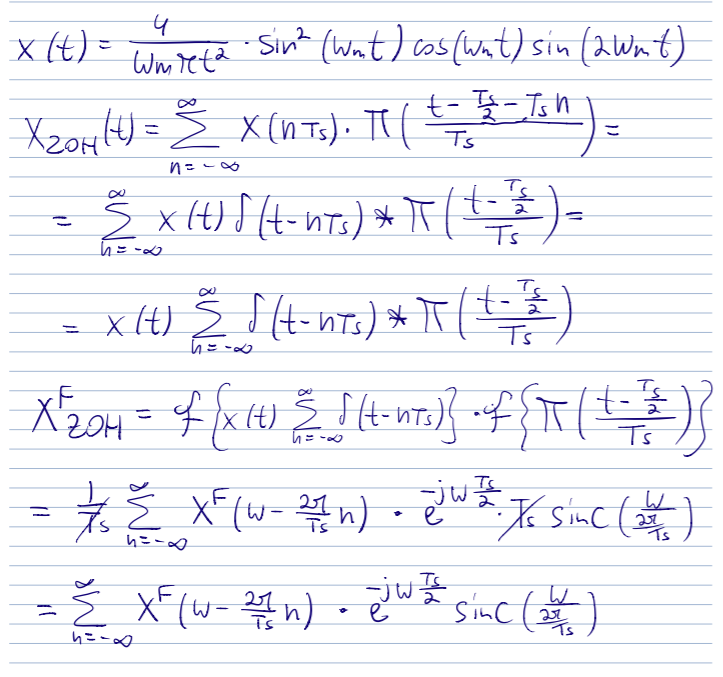 x(t) = 4/(ωmπt²) · sin²(ωmt) cos(ωmt) sin(2ωmt)
XZOH(t) = ∑_{n=-∞}^{∞} x(nTs) · Π((t - Ts/2 - Tsn)/Ts) =
= ∑_{n=-∞}^{∞} x(t) δ(t-nTs) * Π((t - Ts/2)/Ts) =
= x(t) ∑_{n=-∞}^{∞} δ(t-nTs) * Π((t - Ts/2)/Ts)
X^F_ZOH = F{x(t) ∑_{n=-∞}^{∞} δ(t-nTs)} · F{Π((t - Ts/2)/Ts)}
= 1/Ts ∑_{n=-∞}^{∞} X^F(ω - 2π/Ts n) · e^{-jω Ts/2} · Ts sinc(ω/(2π/Ts))
= ∑_{n=-∞}^{∞} X^F(ω - 2π/Ts n) · e^{-jω Ts/2} sinc(ω/(2π/Ts))